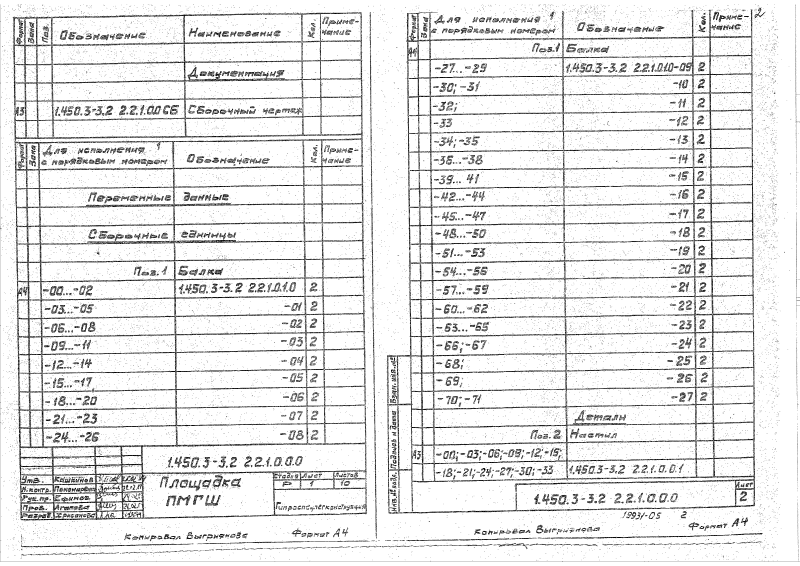 Формат Зона Поз. Обозначение Наименование Кол. Приме-
чание
Документация
А3 1.450.3-3.2 2.2.1.0.0СБ Сборочный чертеж
Формат Зона Для исполнения 1
с порядковым номером Обозначение Кол. Приме-
чание
Переменные данные
Сборочные единицы
Поз.1 Балка
А4 -00...-02 1.450.3-3.2 2.2.1.0.1.0 2
-03...-05 -01 2
-06...-08 -02 2
-09...-11 -03 2
-12...-14 -04 2
-15...-17 -05 2
-18...-20 -06 2
-21...-23 -07 2
-24...-26 -08 2
1.450.3-3.2 2.2.1.0.0.0
Утв.
Н.контр.
Рук.пр. Ефимов
Пров. Агапова
Разраб.
Площадка
ПМГШ
Стадия Лист Листов
Р 1 10
Копировал Выгрианова Формат А4
2
Формат Зона Для исполнения 1
с порядковым номером Обозначение Кол. Приме-
чание
А4 Поз.1 Балка
-27...-29 1.450.3-3.2 2.2.1.0.1.0-09 2
-30; -31 -10 2
-32; -11 2
-33 -12 2
-34; -35 -13 2
-36...-38 -14 2
-39... 41 -15 2
-42...-44 -16 2
-45...-47 -17 2
-48...-50 -18 2
-51...-53 -19 2
-54...-56 -20 2
-57...-59 -21 2
-60...-62 -22 2
-63...-65 -23 2
-66; -67 -24 2
-68; -25 2
-69; -26 2
-70; -71 -27 2
Детали
Поз.2 Настил
А3 -00; -03; -06; -09; -12; -15;
-18; -21; -24; -27; -30; -33 1.450.3-3.2 2.2.1.0.0.1
Инв.№ подл. Подпись и дата Взам. инв.№
1.450.3-3.2 2.2.1.0.0.0
Лист
2
19931-05 2
Копировал Выгрианова Формат А4